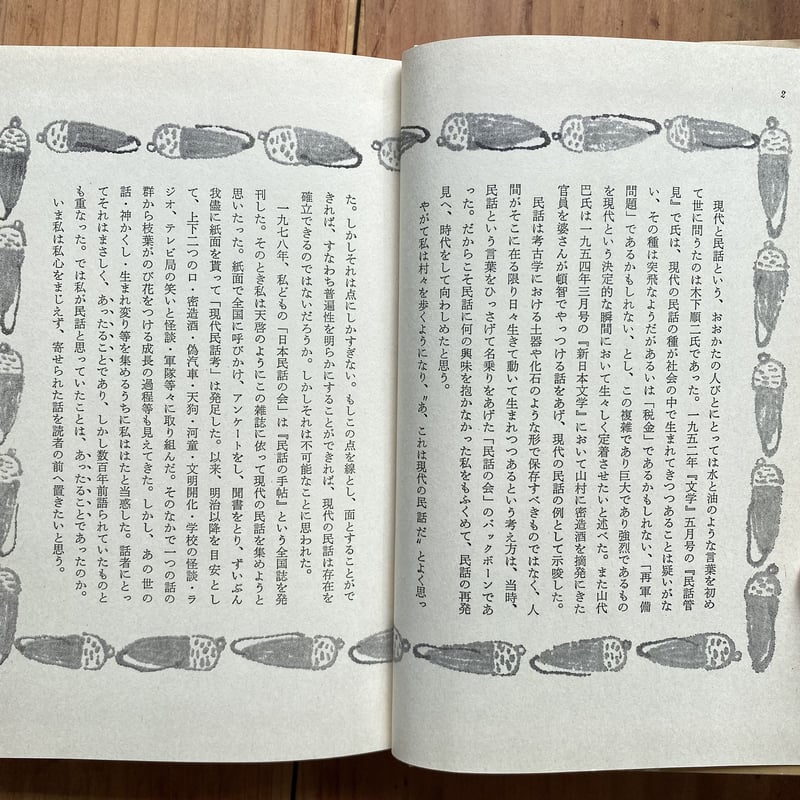 2
現代と民話という、おおかたの人びとにとっては水と油のような言葉を初め
て世に問うたのは木下順二氏であった。一九五二年『文学』五月号の『民話管
見』で氏は、現代の民話の種が社会の中で生まれてきつつあることは疑いがな
い、その種は突飛なようだがあるいは「税金」であるかもしれない、「再軍備
問題」であるかもしれない、とし、この複雑であり巨大であり強烈であるもの
を現代という決定的な瞬間において生々しく定着させたいと述べた。また山代
巴氏は一九五四年三月号の『新日本文学』において山村に密造酒を摘発にきた
官員を婆さんが頓智でやっつける話をあげ、現代の民話の例として示唆した。
民話は考古学における土器や化石のような形で保存すべきものではなく、人
間がそこに在る限り日々生きて動いて生まれつつあるという考え方は、当時、
民話という言葉をひっさげて名乗りをあげた「民話の会」のバックボーンであ
った。だからこそ民話に何の興味を抱かなかった私をもふくめて、民話の再発
見へ、時代をして向わしめたと思う。
やがて私は村々を歩くようになり、〝あ、これは現代の民話だ〟とよく思っ
た。しかしそれは点にしかすぎない。もしこの点を線とし、面とすることがで
きれば、すなわち普遍性を明らかにすることができれば、現代の民話は存在を
確立できるのではないだろうか。しかしそれは不可能なことに思われた。
一九七八年、私どもの「日本民話の会」は『民話の手帖』という全国誌を発
刊した。そのとき私は天啓のようにこの雑誌に依って現代の民話を集めようと
思いたった。紙面で全国に呼びかけ、アンケートをし、聞書をとり、ずいぶん
我儘に紙面を貰って「現代民話考」は発足した。以来、明治以降を目安とし
て、上下二つの口・密造酒・偽汽車・天狗・河童・文明開化・学校の怪談・ラ
ジオ、テレビ局の笑いと怪談・軍隊等々に取り組んだ。そのなかで一つの話の
群から枝葉がのび花をつける成長の過程等も見えてきた。しかし、あの世の
話・神かくし・生まれ変り等を集めるうちに私ははたと当惑した。話者にとっ
てそれはまさしく、あったることであり、しかし数百年前語られていたものと
も重なった。では私が民話と思っていたことは、あったることであったのか。
いま私は私心をまじえず、寄せられた話を読者の前へ置きたいと思う。